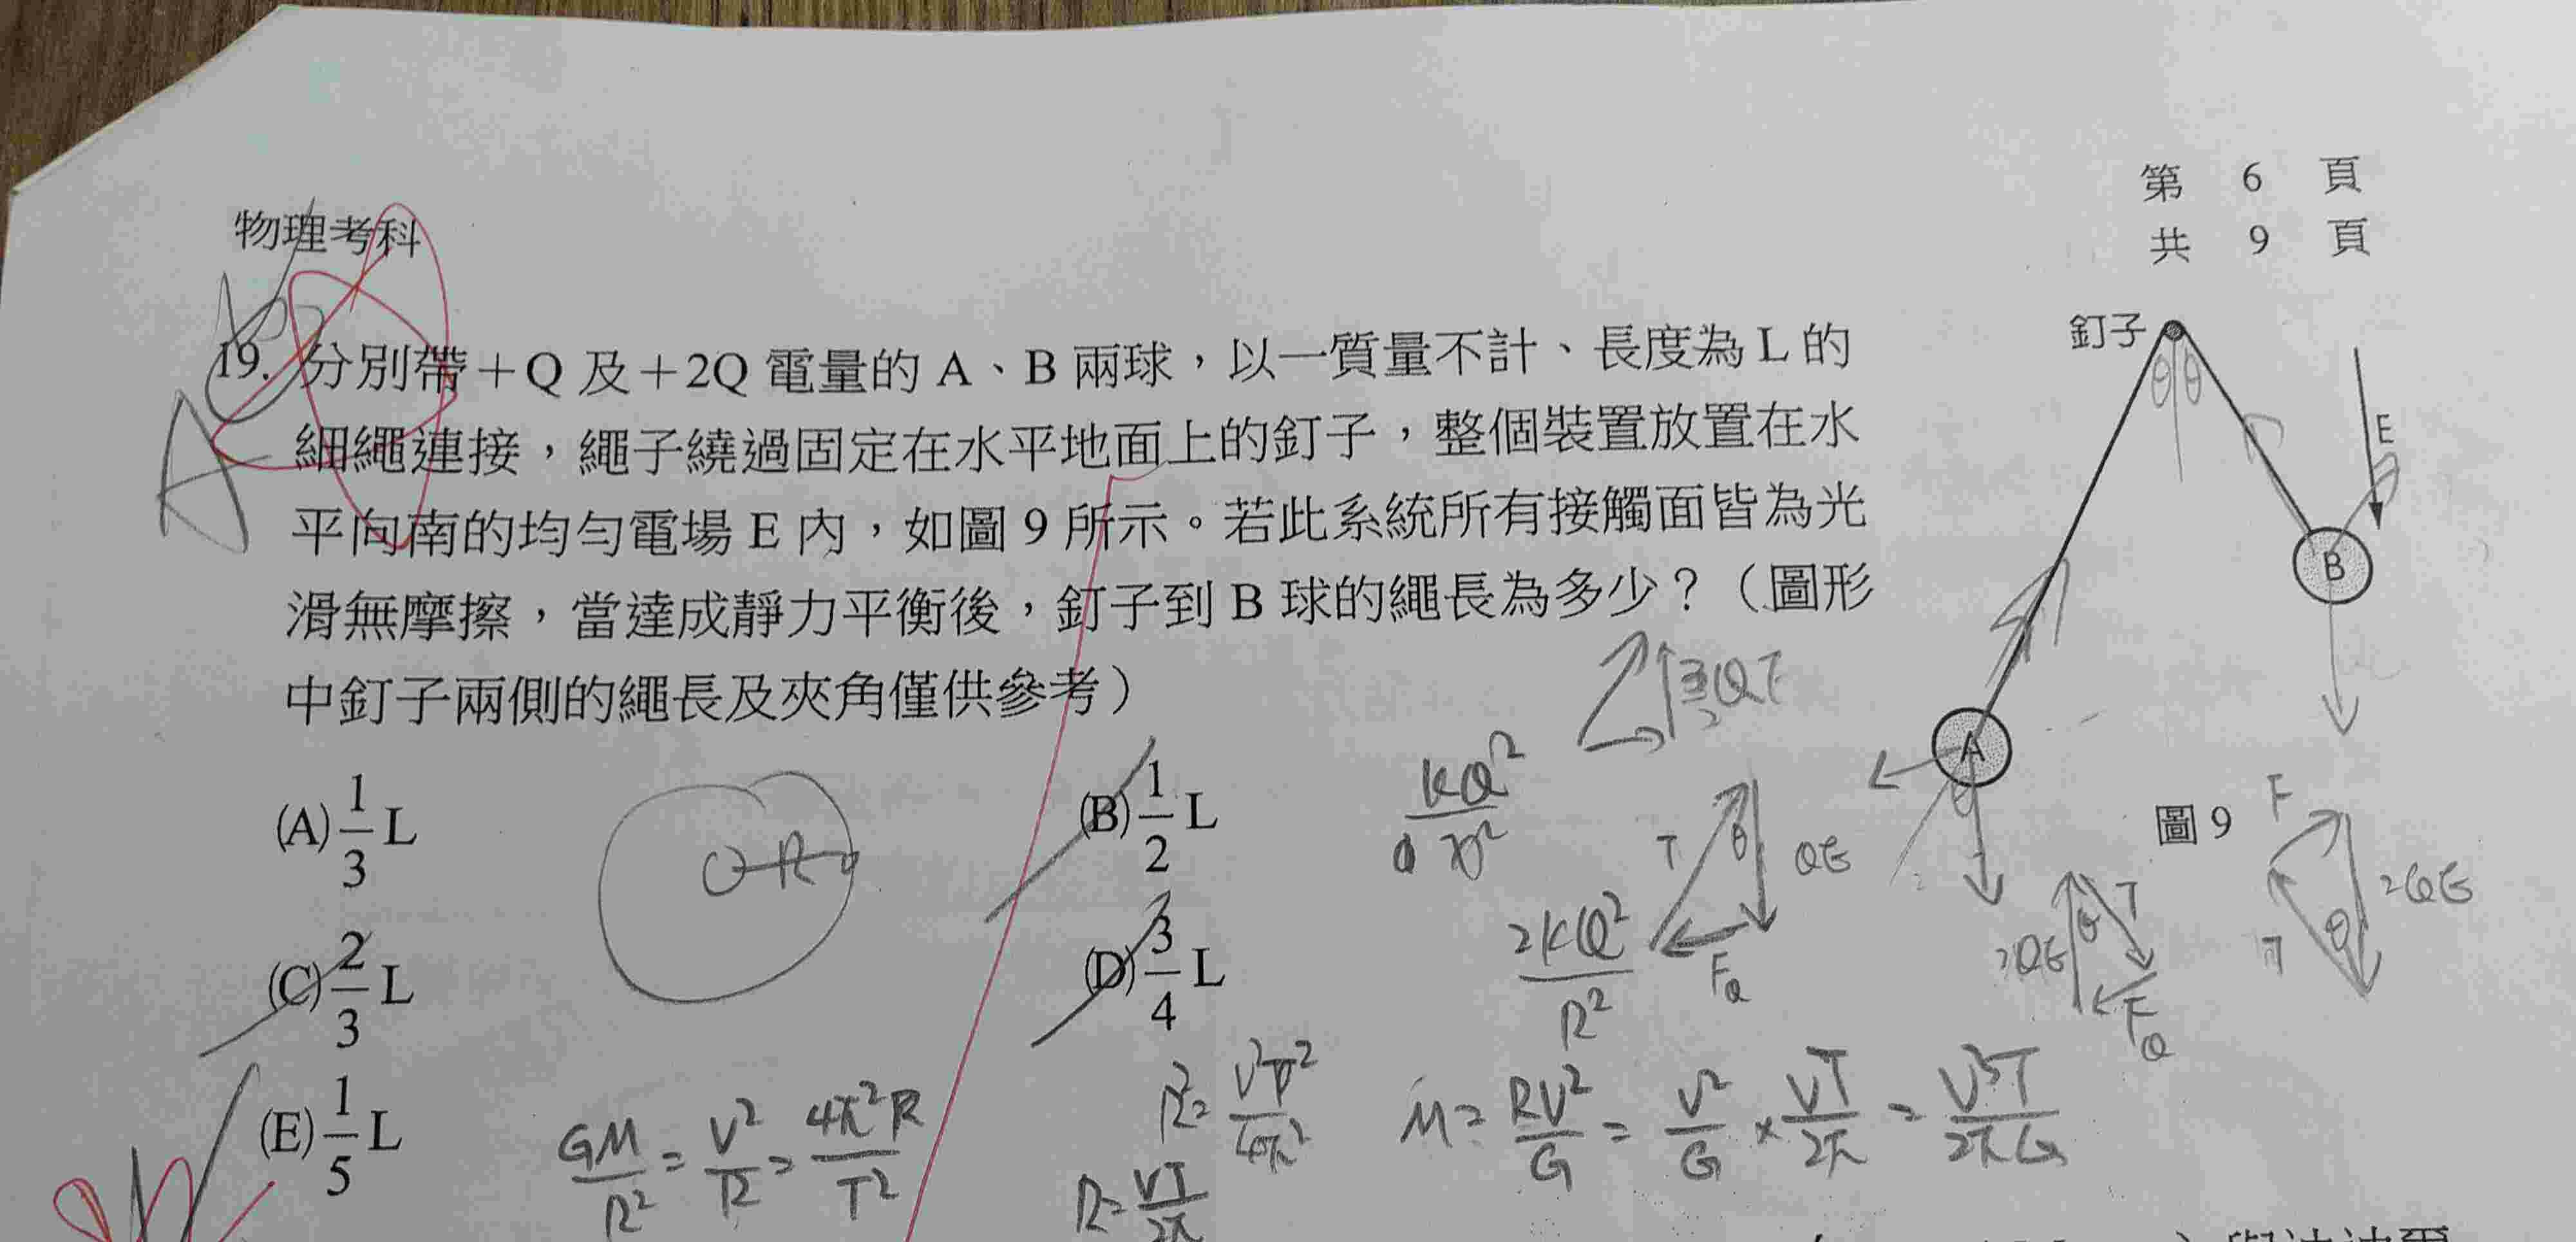 第 6 頁
共 9 頁
物理考科
19. 分別帶+Q 及+2Q 電量的 A、B 兩球，以一質量不計、長度為 L 的
細繩連接，繩子繞過固定在水平地面上的釘子，整個裝置放置在水
平向南的均勻電場 E 內，如圖 9 所示。若此系統所有接觸面皆為光
滑無摩擦，當達成靜力平衡後，釘子到 B 球的繩長為多少？（圖形
中釘子兩側的繩長及夾角僅供參考）
A
釘子
θ θ
E
B
A
圖 9
(A) 1/3 L
(B) 1/2 L
(C) 2/3 L
(D) 3/4 L
(E) 1/5 L
R
2KQ²/R²
T θ QE
F_Q
2QE θ T
F_Q
F
2QE
T θ
GM/R² = V²/R = 4π²R/T²
R² = V²T²/4π²
R = VT/2π
M = RV²/G = V²/G × VT/2π = V³T/2πG